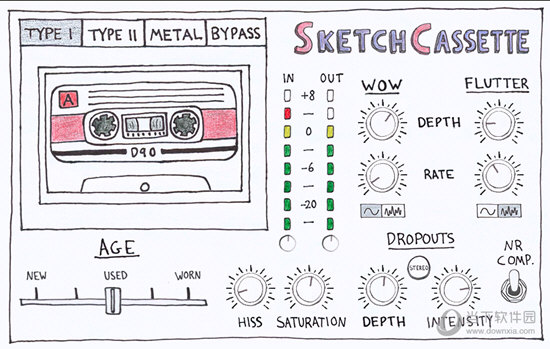 TYPE I TYPE II METAL BYPASS
SKETCHCASSETTE
IN OUT
WOW FLUTTER
+8
A
DEPTH
0
D90
-6
RATE
-20
AGE
DROPOUTS
NEW USED WORN
STEREO
NR
COMP.
HISS SATURATION DEPTH INTENSITY
当下软件园
www.downxia.com